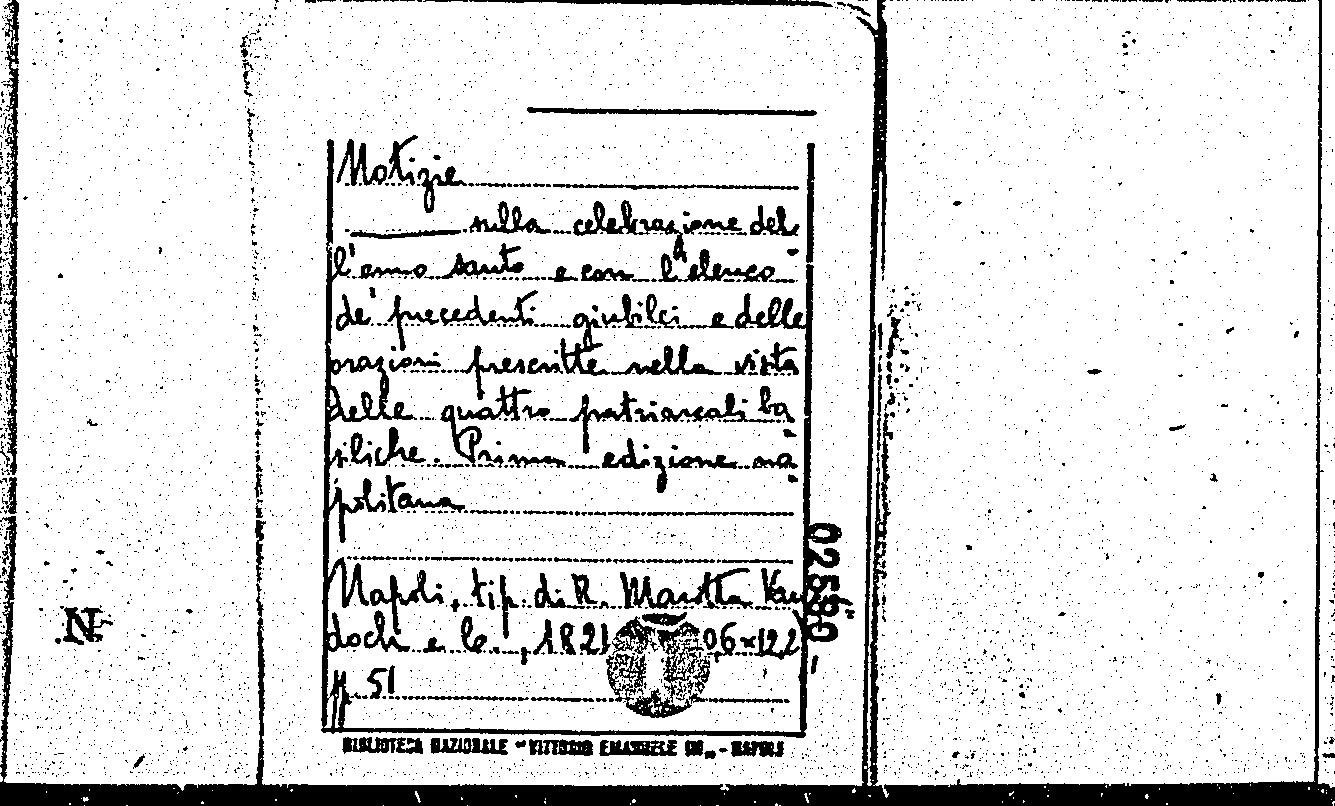 Notizie
sulla celebrazione del-
l'anno santo e con l'elenco
de' precedenti giubilei e delle
orazioni prescritte nella visita
delle quattro patriarcali ba-
siliche. Prima edizione na-
politana
Napoli, tip. di R. Marotta Van
doch e C., 1821 0,6x12,2)
pp. 51
BIBLIOTECA NAZIONALE "VITTORIO EMANUELE III" - NAPOLI
N